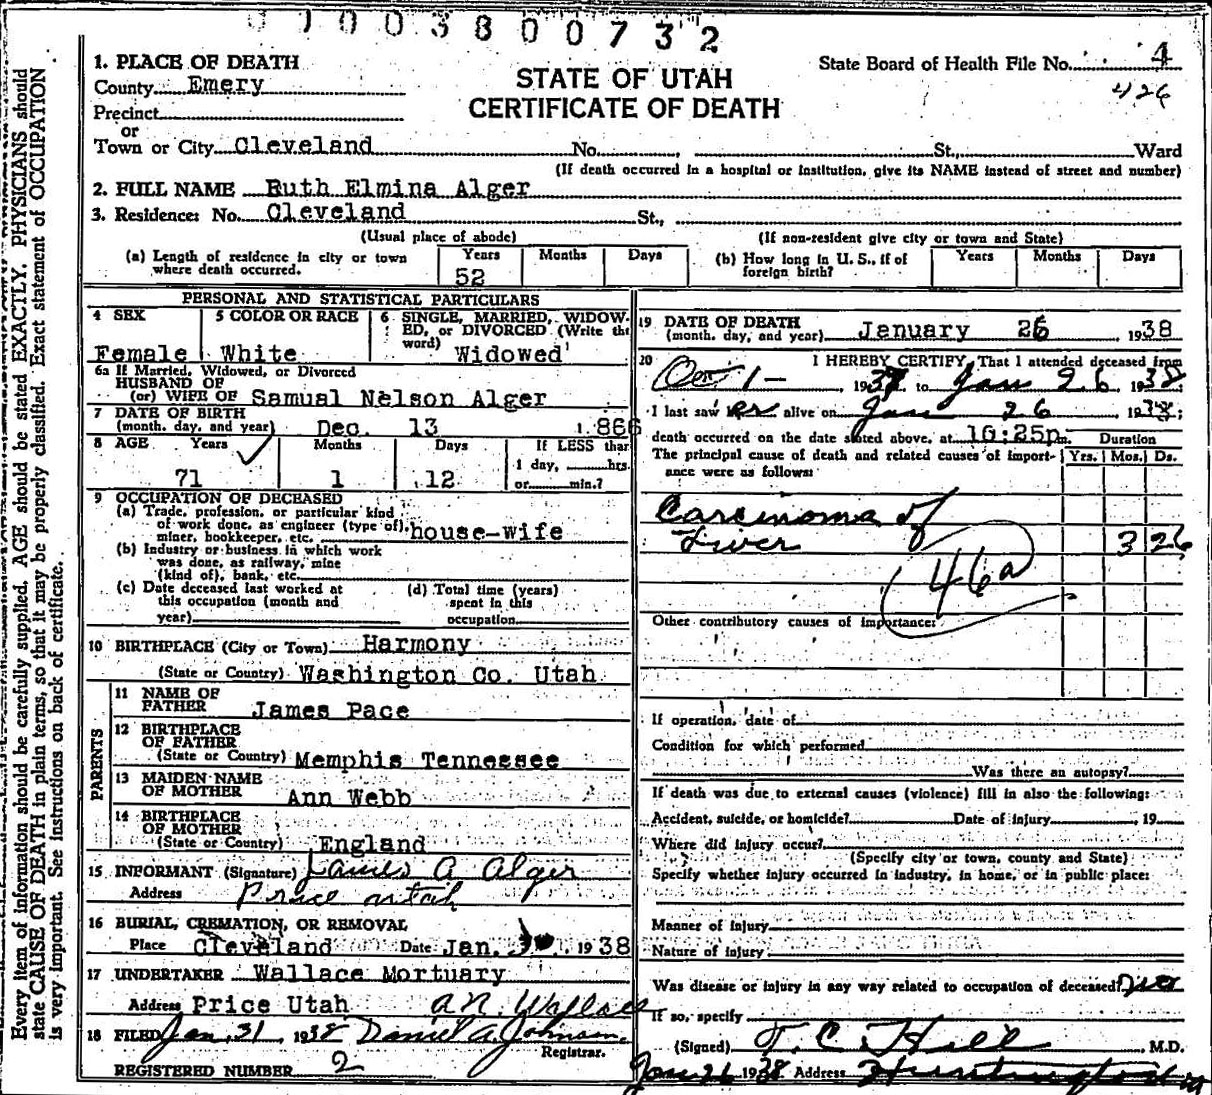 0 1 0 0 3 8 0 0 7 3 2
1. PLACE OF DEATH
County Emery
STATE OF UTAH
State Board of Health File No. 4
CERTIFICATE OF DEATH
426
Precinct
or
Town or City Cleveland No. St., Ward
(If death occurred in a hospital or institution, give its NAME instead of street and number)
2. FULL NAME Ruth Elmina Alger
3. Residence: No. Cleveland St.,
(Usual place of abode) (If non-resident give city or town and State)
(a) Length of residence in city or town where death occurred. Years 52 Months Days
(b) How long in U. S., if of foreign birth? Years Months Days
PERSONAL AND STATISTICAL PARTICULARS
4 SEX Female
5 COLOR OR RACE White
6 SINGLE, MARRIED, WIDOWED, or DIVORCED (Write the word) Widowed
6a If Married, Widowed, or Divorced
HUSBAND OF
(or) WIFE OF Samual Nelson Alger
7 DATE OF BIRTH
(month, day, and year) Dec. 13 1866
8 AGE Years 71 Months 1 Days 12
If LESS than
1 day, hrs.
or min.?
9 OCCUPATION OF DECEASED
(a) Trade, profession, or particular kind
of work done, as engineer (type of),
miner, bookkeeper, etc. house-wife
(b) Industry or business in which work
was done, as railway, mine
(kind of), bank, etc.
(c) Date deceased last worked at
this occupation (month and
year)
(d) Total time (years)
spent in this
occupation
10 BIRTHPLACE (City or Town) Harmony
(State or Country) Washington Co. Utah
PARENTS
11 NAME OF
FATHER James Pace
12 BIRTHPLACE
OF FATHER
(State or Country) Memphis Tennessee
13 MAIDEN NAME
OF MOTHER Ann Webb
14 BIRTHPLACE
OF MOTHER
(State or Country) England
15 INFORMANT (Signature) James A Alger
Address Price utah
16 BURIAL, CREMATION, OR REMOVAL
Place Cleveland Date Jan. 1938
17 UNDERTAKER Wallace Mortuary
Address Price Utah A N. Wallace
18 FILED Jan. 31 1938 Daniel A. Johnson
Registrar.
REGISTERED NUMBER 2
19 DATE OF DEATH
(month, day, and year) January 26 1938
20 I HEREBY CERTIFY, That I attended deceased from
Oct 1- 1937 to Jan 26 1938;
I last saw her alive on Jan 26 1938;
death occurred on the date stated above, at 10:25p m. Duration
The principal cause of death and related causes of importance were as follows: Yrs. Mos. Ds.
Carcinoma of
Liver 3 26
46a
Other contributory causes of importance:
If operation, date of
Condition for which performed
Was there an autopsy?
If death was due to external causes (violence) fill in also the following:
Accident, suicide, or homicide? Date of injury , 19
Where did injury occur?
(Specify city or town, county and State)
Specify whether injury occurred in industry, in home, or in public place:
Manner of injury
Nature of injury
Was disease or injury in any way related to occupation of deceased?
If so, specify
(Signed) T. C. Hill , M.D.
Jan 26 1938 Address Huntington Ut
Every item of information should be carefully supplied. AGE should be stated EXACTLY. PHYSICIANS should
state CAUSE OF DEATH in plain terms, so that it may be properly classified. Exact statement of OCCUPATION
is very important. See instructions on back of certificate.